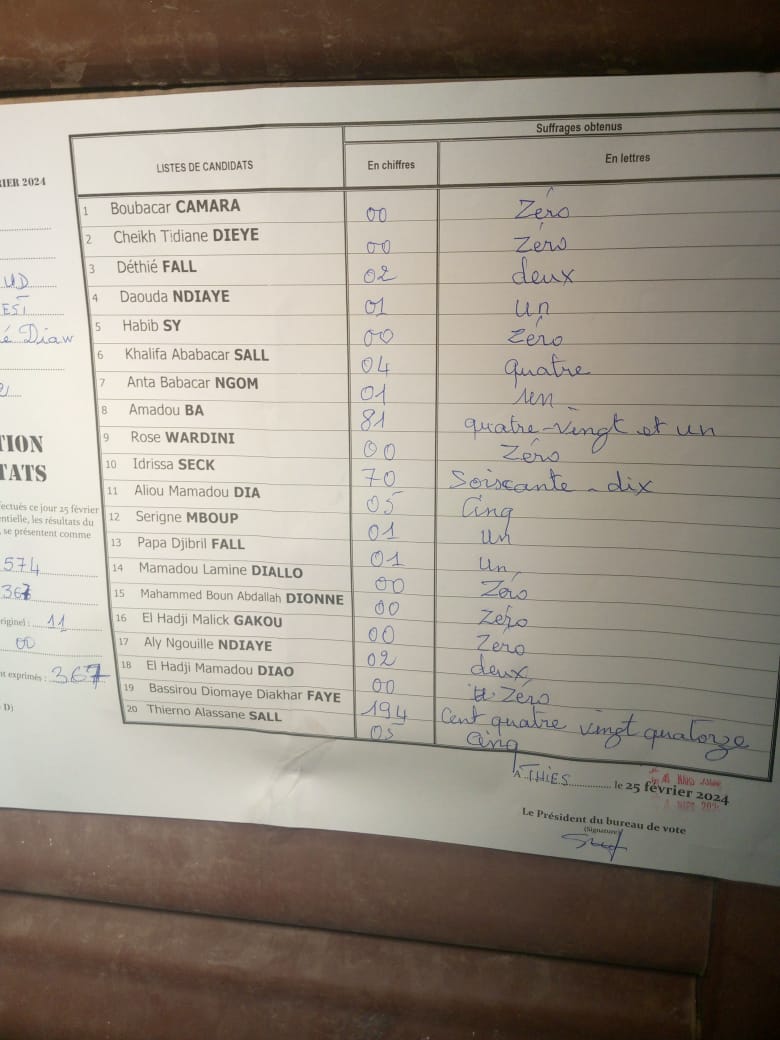 Suffrages obtenus
LISTES DE CANDIDATS En chiffres En lettres
RIER 2024
1 Boubacar CAMARA 00 Zéro
2 Cheikh Tidiane DIEYE 00 Zéro
3 Déthié FALL 02 deux
4 Daouda NDIAYE 01 un
5 Habib SY 00 Zéro
6 Khalifa Ababacar SALL 04 quatre
7 Anta Babacar NGOM 01 un
8 Amadou BA 81 quatre-vingt et un
9 Rose WARDINI 00 Zéro
10 Idrissa SECK 70 Soixante-dix
11 Aliou Mamadou DIA 05 Cinq
12 Serigne MBOUP 01 un
13 Papa Djibril FALL 01 un
14 Mamadou Lamine DIALLO 00 Zéro
15 Mahammed Boun Abdallah DIONNE 00 Zéro
16 El Hadji Malick GAKOU 00 Zéro
17 Aly Ngouille NDIAYE 02 deux
18 El Hadji Mamadou DIAO 00 Zéro
19 Bassirou Diomaye Diakhar FAYE 194 Cent quatre vingt quatorze
20 Thierno Alassane SALL 05 Cinq
UD
EST
é Diaw
TION
TATS
fectués ce jour 25 février
entielle, les résultats du
, se présentent comme
574
367
riginel : 11
00
nt exprimés : 367
D)
A THIES le 25 février 2024
Le Président du bureau de vote
(Signature)